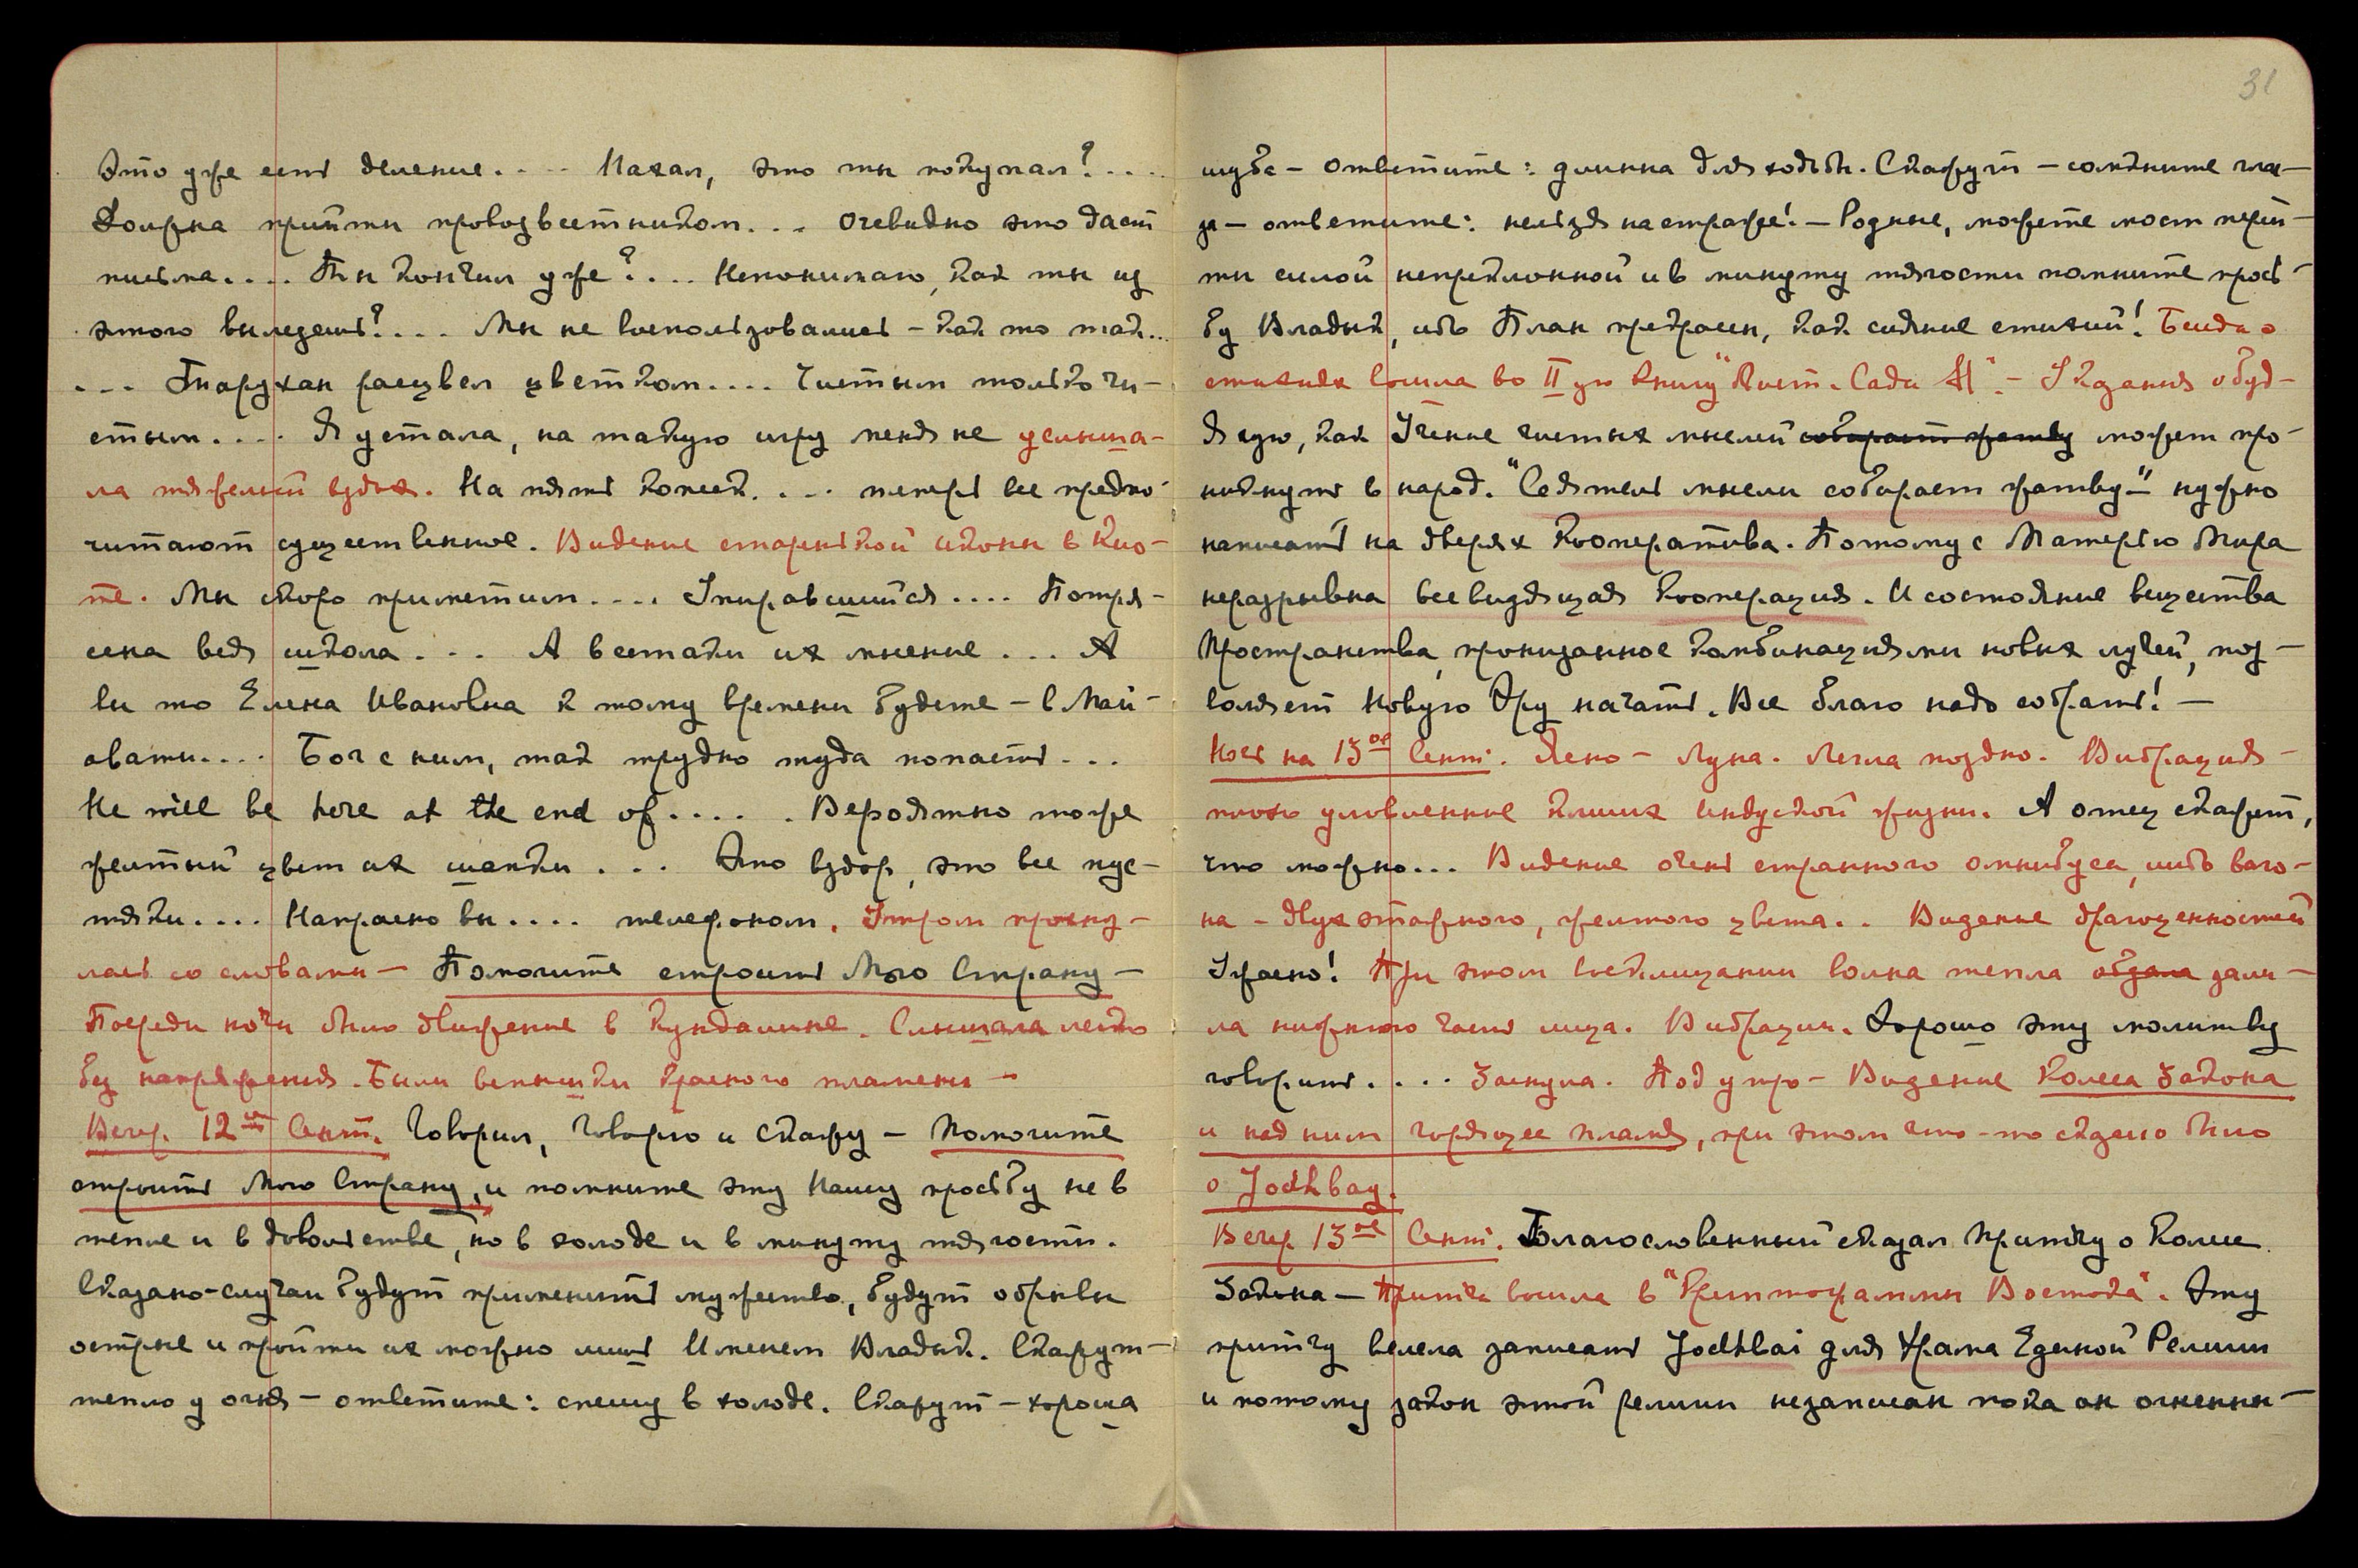 Это уже есть деление.... Нахал, это ты покупал?....
Должна прийти провозвестником... Очевидно это даст
письма.... Ты кончил уже?.... Непонимаю, как ты из
этого вылезешь?.... Мы не воспользовались – как то так...
... Тархан расцвел цветком.... Чистым только чи-
стым.... Я устала, на такую игру меня не услыша-
ла тяжелый вздох. На пять копеек.... теперь все предпо-
читают существенное. Видение старенькой иконы в Кио-
те. Мы скоро приметим.... Упиравшийся.... Потря-
сена ведь школа... А всетаки их мнение... А
вы то Елена Ивановна к тому времени будете – в Май-
авати.... Бог с ним, так трудно туда попасть...
He will be here at the end of..... Вероятно тоже
желтый цвет их шапки... Это вздор, это все пус-
тяки.... Напрасно вы.... телефоном. Утром просну-
лась со словами – Помогите строить Мою Страну –
Посреди ночи было движение в Кундалине. Слышала легко
без напряжения. Были вспышки красного пламени –
Вечер. 12ое Сент. Говорил, говорю и скажу – помогите
строить Мою Страну, и помните эту Нашу просьбу не в
тепле и в довольстве, но в холоде и в минуту тягости.
Сказано – случаи будут применить мужество, будут обрывы
острые и пройти их можно лишь Именем Владык. Скажут –
тепло у огня – ответите: спешу в холоде. Скажут – хороша
31
шуба – ответите: длинна для ходьбы. Скажут – сомкните гла-
за – ответите: нельзя на страже! – Родные, можете мост перей-
ти силой непреклонной и в минуту тягости помните прось-
бу Владык, ибо План прекрасен, как сияние стихий! Беседа о
стихиях вошла во II ую книгу "Лист. Сада М". – Указания о буд-
Я едю, как Учение чистых мыслей собирает жатву может про-
никнуть в народ. "Сеятель мысли собирает жатву" – нужно
написать на дверях Кооператива. Потому с Матерью Мира
неразрывна всевидящая Кооперация. И состояние вещества
Пространства, пронизанное комбинациями новых лучей, поз-
воляет Новую Эру начать. Все благо надо собрать! –
Ночь на 13ое Сент. Ясно – Луна. Легла поздно. Вибрация –
плохо уловленные клише индусской жизни. А отец скажет,
что можно... Видение очень странного омнибуса, либо ваго-
на – двухэтажного, желтого цвета.. Видение драгоценностей
Ужасно! При этом восклицании волна тепла обдала зали-
ла нижнюю часть лица. Вибрации. Хорошо эту молитву
говорить.... Заснула. Под утро – Видение Колеса Закона
и над ним горящее пламя, при этом что-то сказано было
о Jodhbay.
Вечер 13ое Сент. Благословенный сказал Притчу о Колесе
Закона – Притча вошла в "Криптограммы Востока". Эту
притчу велела записать Jodhbai для Храма Единой Религии
и потому закон этой религии незаписан пока он огненны –